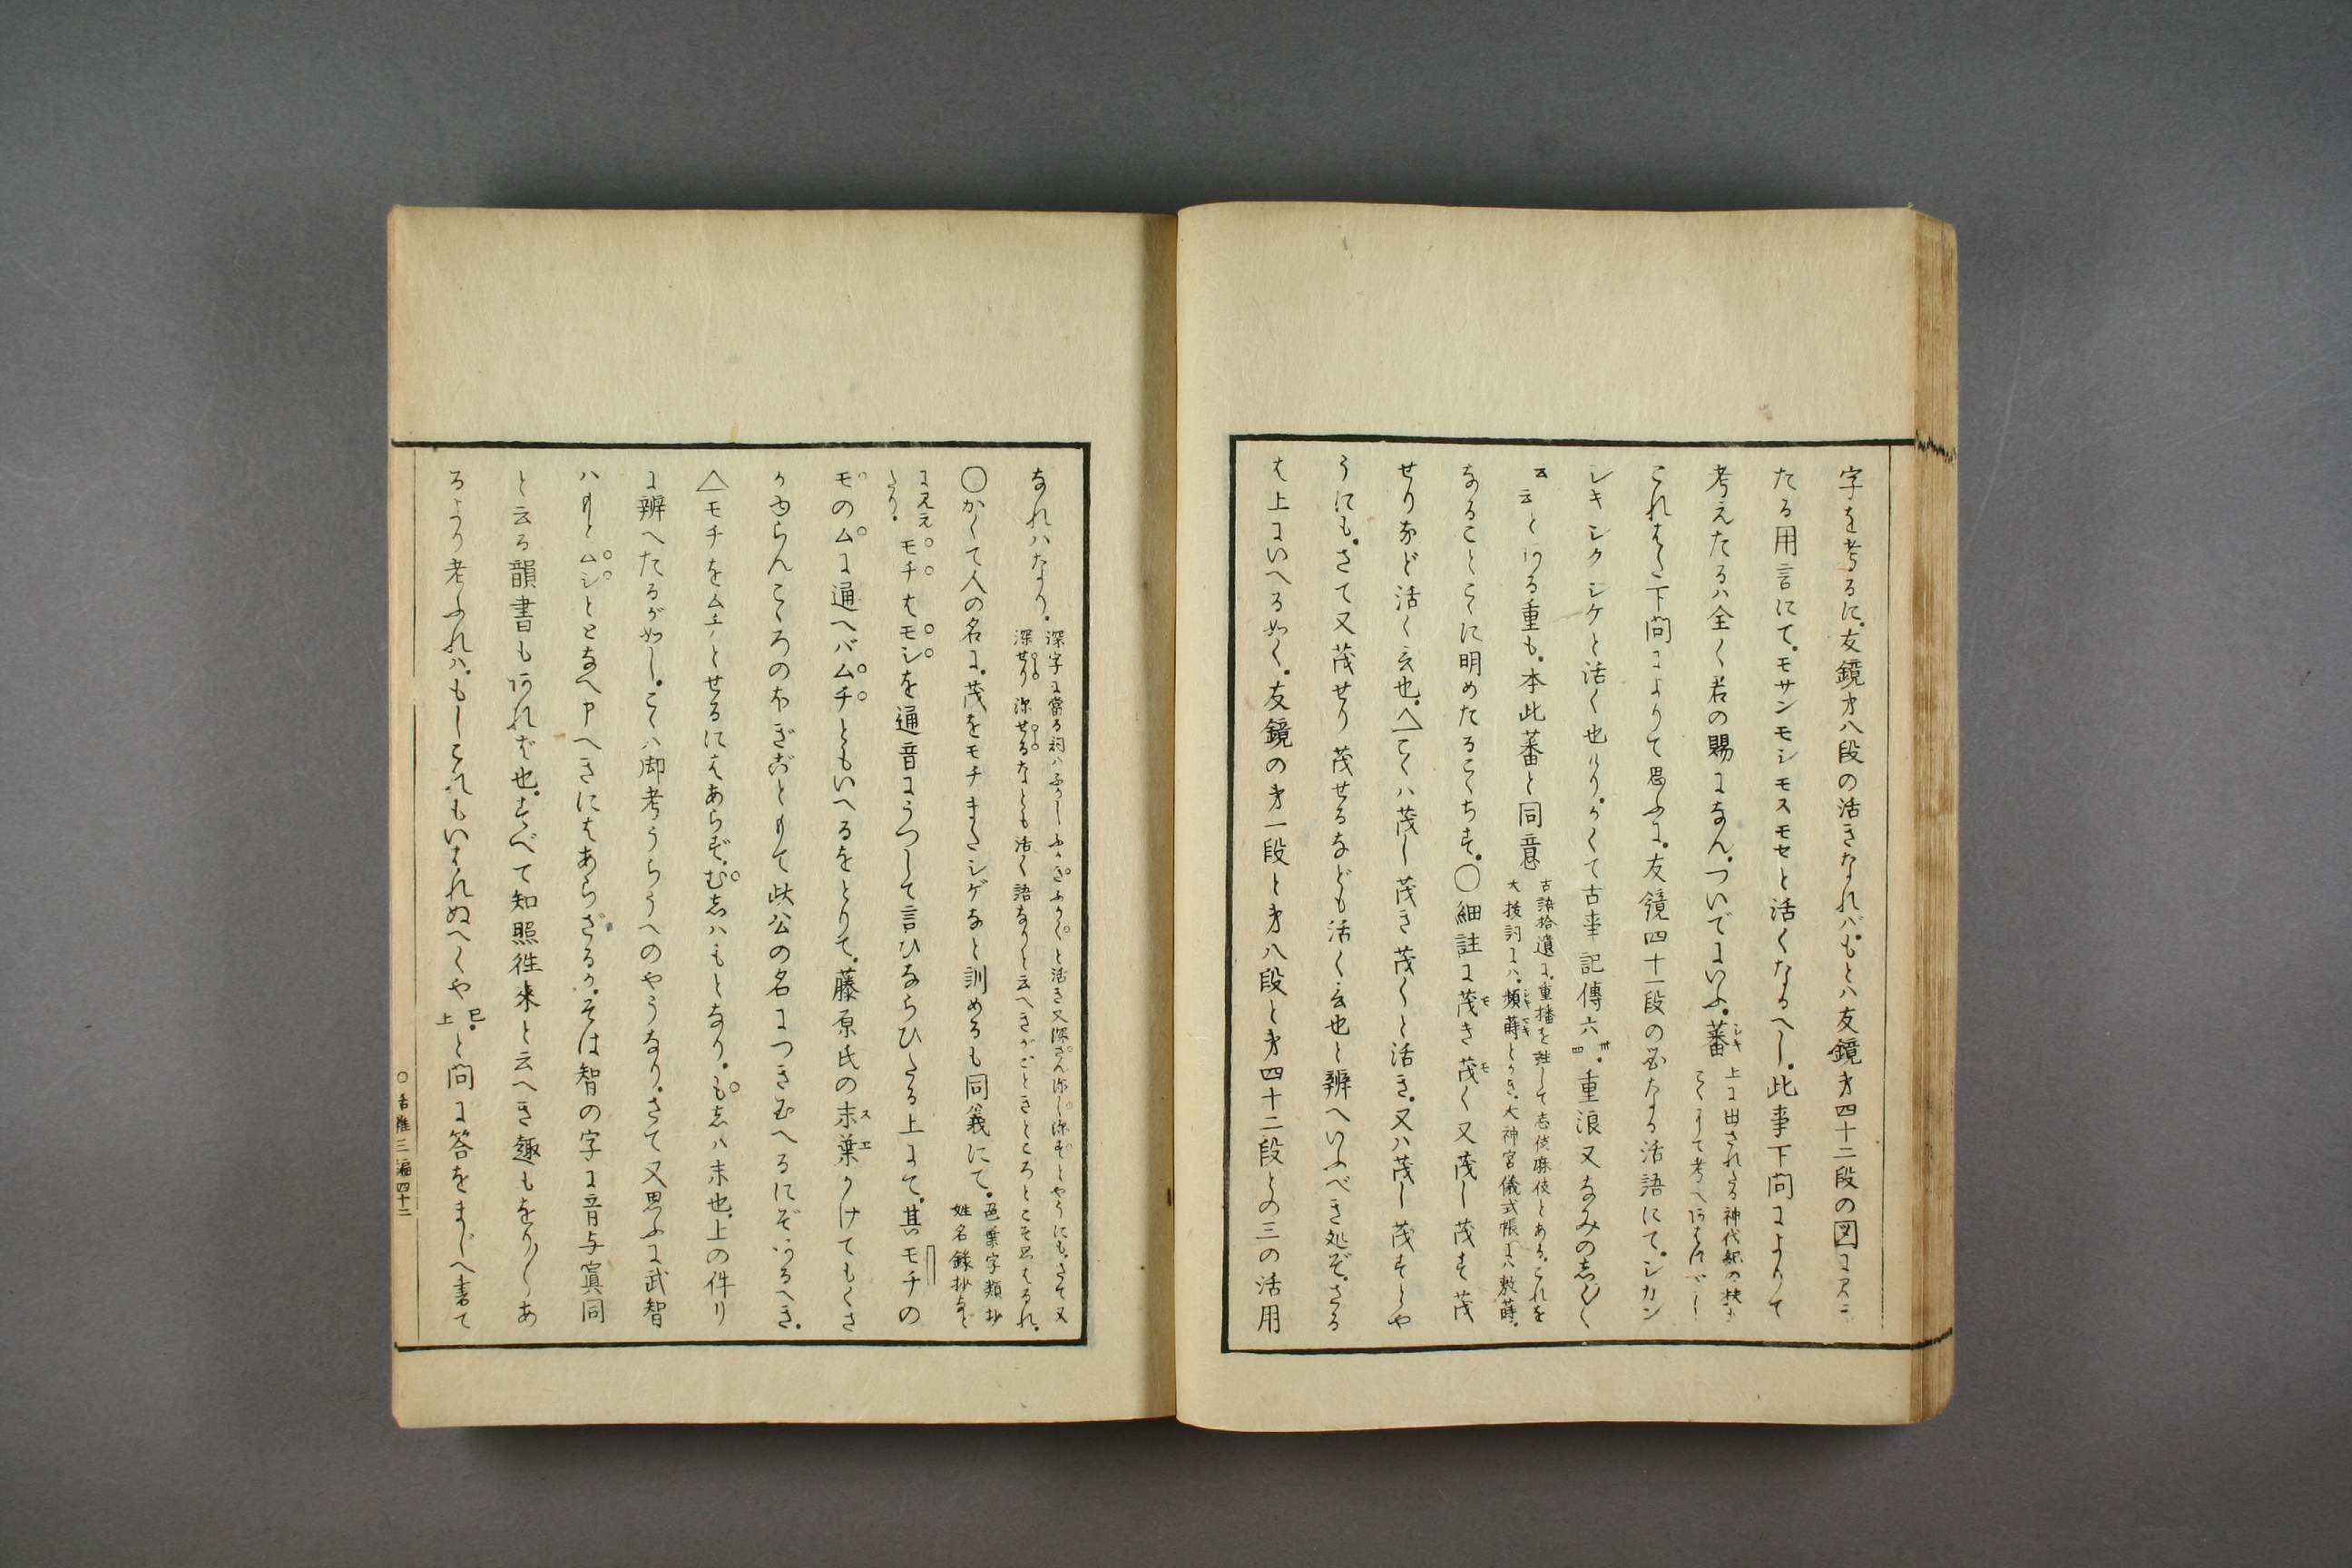 字を考るに。友鏡オ八段の活きなれバ。もとハ友鏡オ四十二段の図にみえ
たる用言にて。モサンモシモスモセと活くなるへし。此事下問によりて
考えたるハ全く君の賜になん。ついでにいふ。蕃シキ
上に出されたる神代紀の
これまた下問によりて思ふに。友鏡四十一段の図なる活語にて。シカン
シキシクシケと活く也けり。かくて古事記傳六 重浪又なみの
云云とある重も。本此蕃と同意
古語拾遺に。重播を註して志伎麻伎とある。これを
大抜詞にハ。頻蒔とかき。大神宮儀式帳にハ敷蒔。
なることこゝに明めたるこゝちす。〇細註に茂モき茂モく又茂し茂す茂
せりなど活く云也。△こゝハ茂し茂き茂くと活き。又ハ茂し茂すとや
うにも。さて又茂せり茂せるなども活く云也と辨へいふべき処ぞ。さる
は上にいへる如く。友鏡のオ一段とオ八段とオ四十二段との三の活用
なれハなり。
深字に當る詞ハふかしふかきふかくと活き又深さん深し深すとやうにも。さて又
深せり深せるなとも活く語なりと云へきがごときところとこそ思はるれ。
〇かくて人の名に。茂をモチまたシゲなと訓めるも同義にて。
色葉字類抄
姓名録抄など
にみえ
たり。
モチはモシを通音にうつして言ひならひたる上にて。其モチの
モのムに通へバムチともいへるをとりて。藤原氏の末葉スエかけてもくさ
かゆらんこゝろのほぎごとりて此公の名につき玉へるにぞいあるへき。
△モチをムチとせるにはあらず。むしハもとなり。もしハ末也。上の件り
に辨へたるが如し。こハ御考うらうへのやうなり。さて又思ふに武智
ハもとムシととなへ申へきにはあらざるか。そは智の字に音与寘同
と云る韻書もあれば也。すべて知照徃来と云へき趣もをり〳〵あ
るより考ふれハ。もしこれもいはれぬへくや已上。と問に答をまじへ書て
〇活雅三編四十二